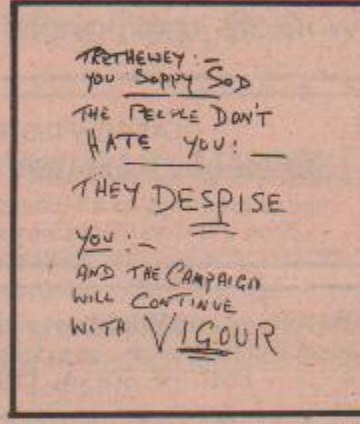 TRETHEWEY :-
YOU SOPPY SOD
THE PEOPLE DON'T
HATE YOU: —
THEY DESPISE
YOU :-
AND THE CAMPAIGN
WILL CONTINUE
WITH VIGOUR